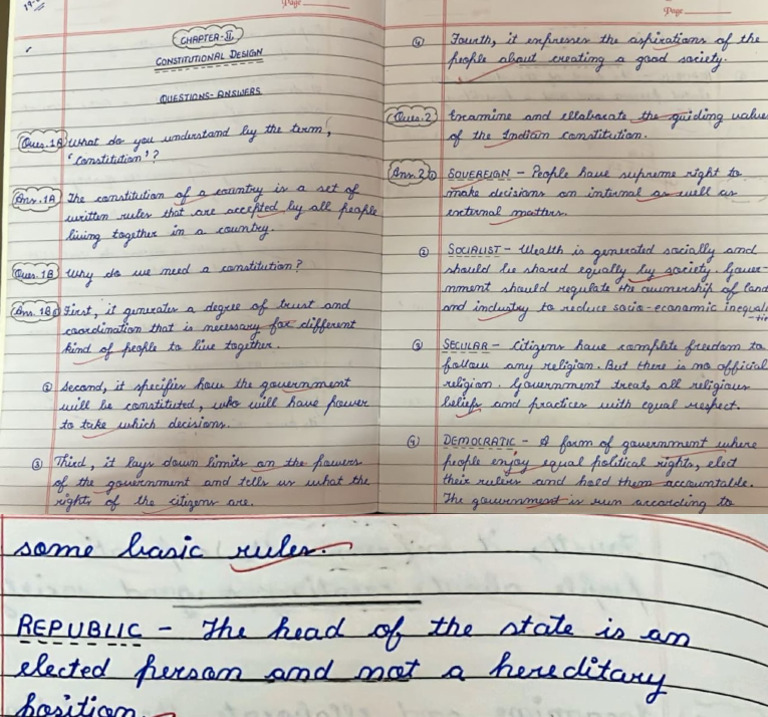 19-
Page
CHAPTER-II
CONSTITUTIONAL DESIGN
QUESTIONS-ANSWERS
Ques.1A What do you understand by the term,
'Constitution'?
Ans.1A The constitution of a country is a set of
written rules that are accepted by all people
living together in a country.
Ques.1B Why do we need a constitution?
Ans.1B ① First, it generates a degree of trust and
coordination that is necessary for different
kind of people to live together.
② Second, it specifies how the government
will be constituted, who will have power
to take which decisions.
③ Third, it lays down limits on the powers
of the government and tells us what the
rights of the citizens are.
Page
④ Fourth, it expresses the aspirations of the
people about creating a good society.
Ques.2 Examine and ellaborate the guiding values
of the Indian constitution.
Ans.2 ① SOVEREIGN - People have supreme right to
make decisions on internal as well as
external matters.
② SOCIALIST - Wealth is generated socially and
should be shared equally by society. Gover-
nment should regulate the ownership of land
and industry to reduce socio-economic inequali
-ties
③ SECULAR - Citizens have complete freedom to
follow any religion. But there is no official
religion. Government treats all religious
beliefs and practices with equal respect.
④ DEMOCRATIC - A form of government where
people enjoy equal political rights, elect
their rulers and hold them accountable.
The government is run according to
some basic rules.
REPUBLIC - The head of the state is an
elected person and not a hereditary
position.